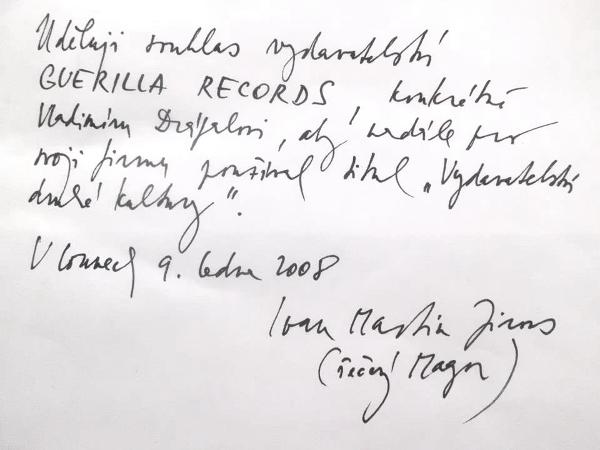 Uděluji souhlas vydavatelství
GUERILLA RECORDS, konkrétně
Vladimíru Drápalovi, aby nadále pro
svoji firmu používal titul „Vydavatelství
druhé kultury“.
V 9. ledna 2008
Ivan Martin Jirous
(řečený Magor)